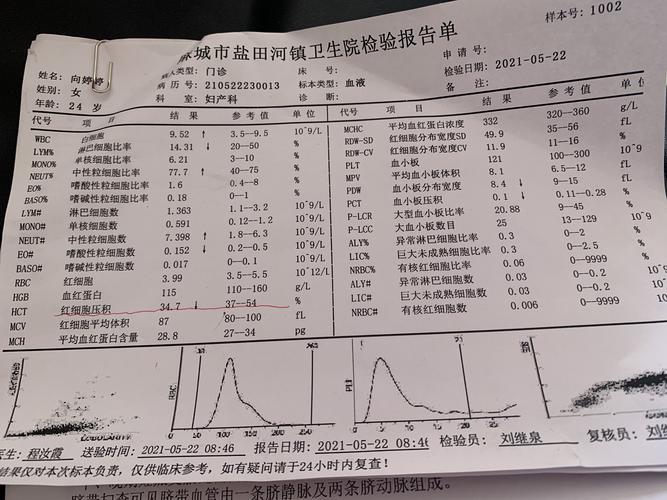 麻城市盐田河镇卫生院检验报告单
样本号: 1002
姓名: 向婷婷 病人类型: 门诊 床 号: 申请号:
性别: 女 病历号: 210522230013 标本类型: 血液 检验日期: 2021-05-22
年龄: 24 岁 科 室: 妇产科 诊 断: 备 注:
代号 项 目 结 果 参 考 值 单 位 代号 项 目 结 果 参 考 值 单 位
WBC 白细胞 9.52 ↑ 3.5--9.5 10^9/L MCHC 平均血红蛋白浓度 332 320--360 g/L
LYM% 淋巴细胞比率 14.31 ↓ 20--50 % RDW-SD 红细胞分布宽度SD 49.9 35--56 fL
MONO% 单核细胞比率 6.21 3--10 % RDW-CV 红细胞分布宽度CV 11.9 11--16 %
NEUT% 中性粒细胞比率 77.7 ↑ 40--75 % PLT 血小板 121 100--300 10^9
EO% 嗜酸性粒细胞比率 1.6 0.4--8 % MPV 平均血小板体积 8.1 6.5--12 fL
BASO% 嗜碱性粒细胞比率 0.18 0--1 % PDW 血小板分布宽度 8.4 ↓ 9--15 fL
LYM# 淋巴细胞数 1.363 1.1--3.2 10^9/L PCT 血小板压积 0.1 ↓ 0.11--0.28 %
MONO# 单核细胞数 0.591 0.12--1.2 10^9/L P-LCR 大型血小板比率 20.88 9--45 %
NEUT# 中性粒细胞数 7.398 ↑ 1.8--6.3 10^9/L P-LCC 大血小板数目 25 13--129 10^9/
EO# 嗜酸性粒细胞数 0.152 ↓ 0.2--0.5 10^9/L ALY% 异常淋巴细胞比率 0.3 0--2 %
BASO# 嗜碱性粒细胞数 0.017 0--0.1 10^9/L LIC% 巨大未成熟细胞比率 0.3 0--2.5 %
RBC 红细胞 3.99 3.5--5.5 10^12/L NRBC% 有核红细胞比率 0.06 0--9999 %
HGB 血红蛋白 115 110--160 g/L ALY# 异常淋巴细胞数 0.03 0--0.2 10^9/
HCT 红细胞压积 34.7 ↓ 37--54 % LIC# 巨大未成熟细胞数 0.03 0--0.2 10^9/
MCV 红细胞平均体积 87 80--100 fL NRBC# 有核红细胞数 0.006 0--9999 10^9/
MCH 平均血红蛋白含量 28.8 27--34 pg
RBC PLT
50 100 150 200 250 10 20
医生: 程汝霞 送验时间: 2021-05-22 08:46 报告日期: 2021-05-22 08:46 检验员: 刘继泉 复核员: 刘继
结果仅对本次标本负责, 仅供临床参考, 如有疑问请于24小时内复查!
脐带扫查可见脐带血管由一条脐静脉及两条脐动脉组成。